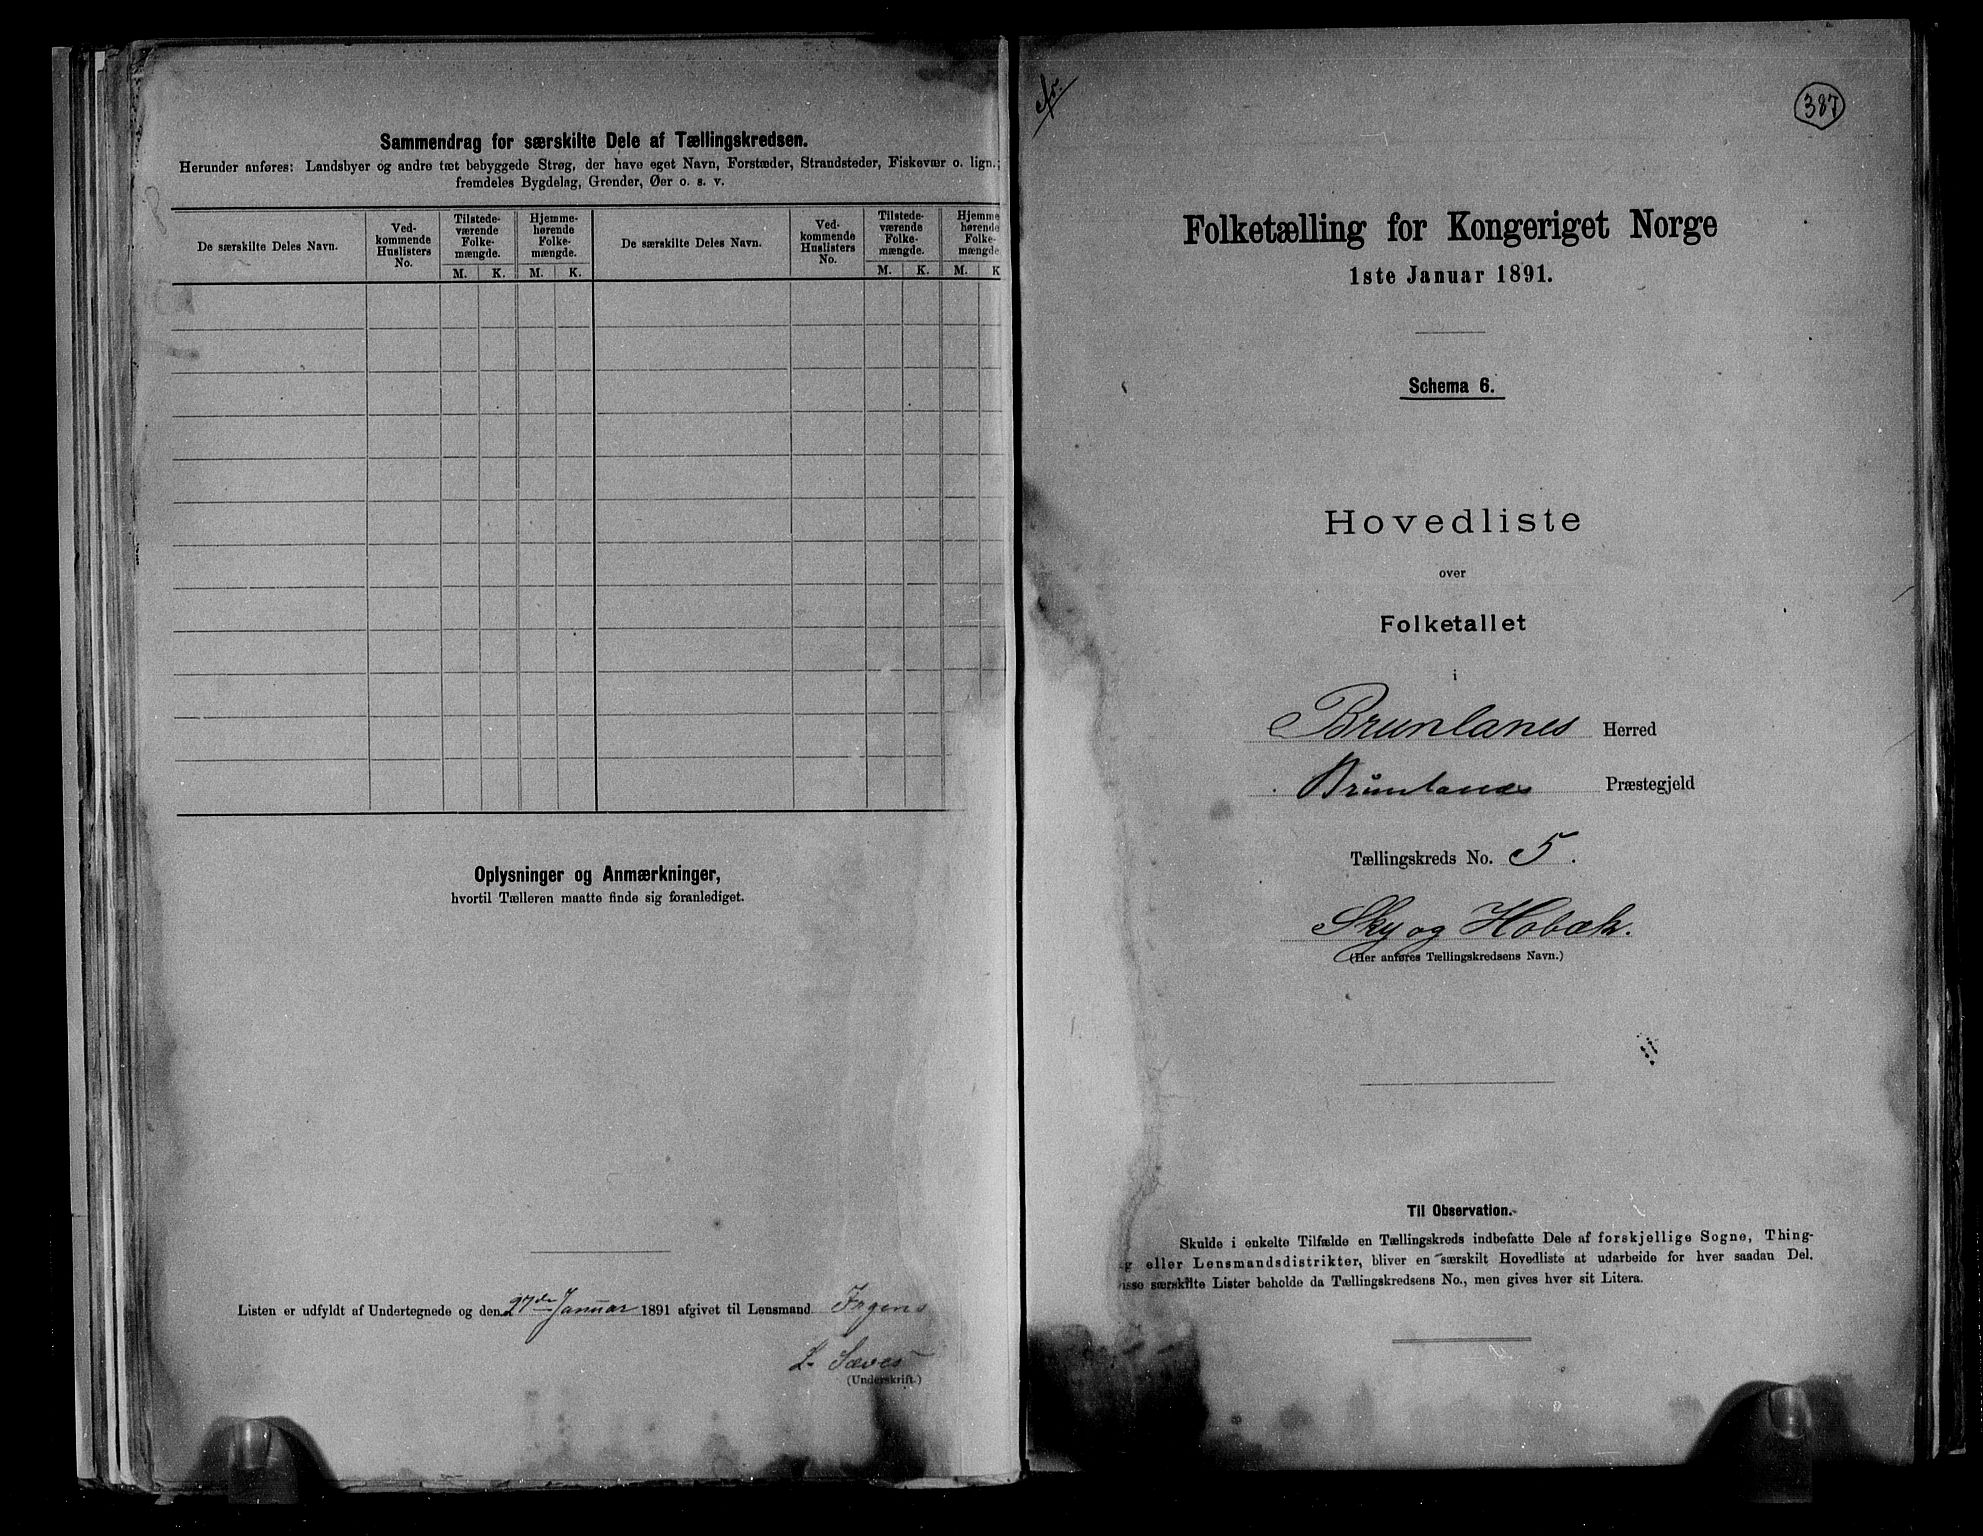 Sammendrag for særskilte Dele af Tællingskredsen.
Herunder anføres: Landsbyer og andre tæt bebyggede Strøg, der have eget Navn, Forstæder, Strandsteder, Fiskevær o. lign.;
fremdeles Bygdelag, Grender, Øer o. s. v.
De særskilte Deles Navn.
Ved-
kommende
Huslisters
No.
Tilstede-
værende
Folke-
mængde.
M. K.
Hjemme-
hørende
Folke-
mængde.
M. K.
De særskilte Deles Navn.
Ved-
kommende
Huslisters
No.
Tilstede-
værende
Folke-
mængde.
M. K.
Hjemme
hørende
Folke-
mængde
M. K
Oplysninger og Anmærkninger,
hvortil Tælleren maatte finde sig foranlediget.
Listen er udfyldt af Undertegnede og den 27de Januar 1891 afgivet til Lensmand
L. Sæves
(Underskrift.)
387
Folketælling for Kongeriget Norge
1ste Januar 1891.
Schema 6.
Hovedliste
over
Folketallet
i
Brunlanes Herred
Brunlanes Præstegjeld
Tællingskreds No. 5.
Sky og Hobæk.
(Her anføres Tællingskredsens Navn.)
Til Observation.
Skulde i enkelte Tilfælde en Tællingskreds indbefatte Dele af forskjellige Sogne, Thing-
g eller Lensmandsdistrikter, bliver en særskilt Hovedliste at udarbeide for hver saadan Del.
isse særskilte Lister beholde da Tællingskredsens No., men gives hver sit Litera.